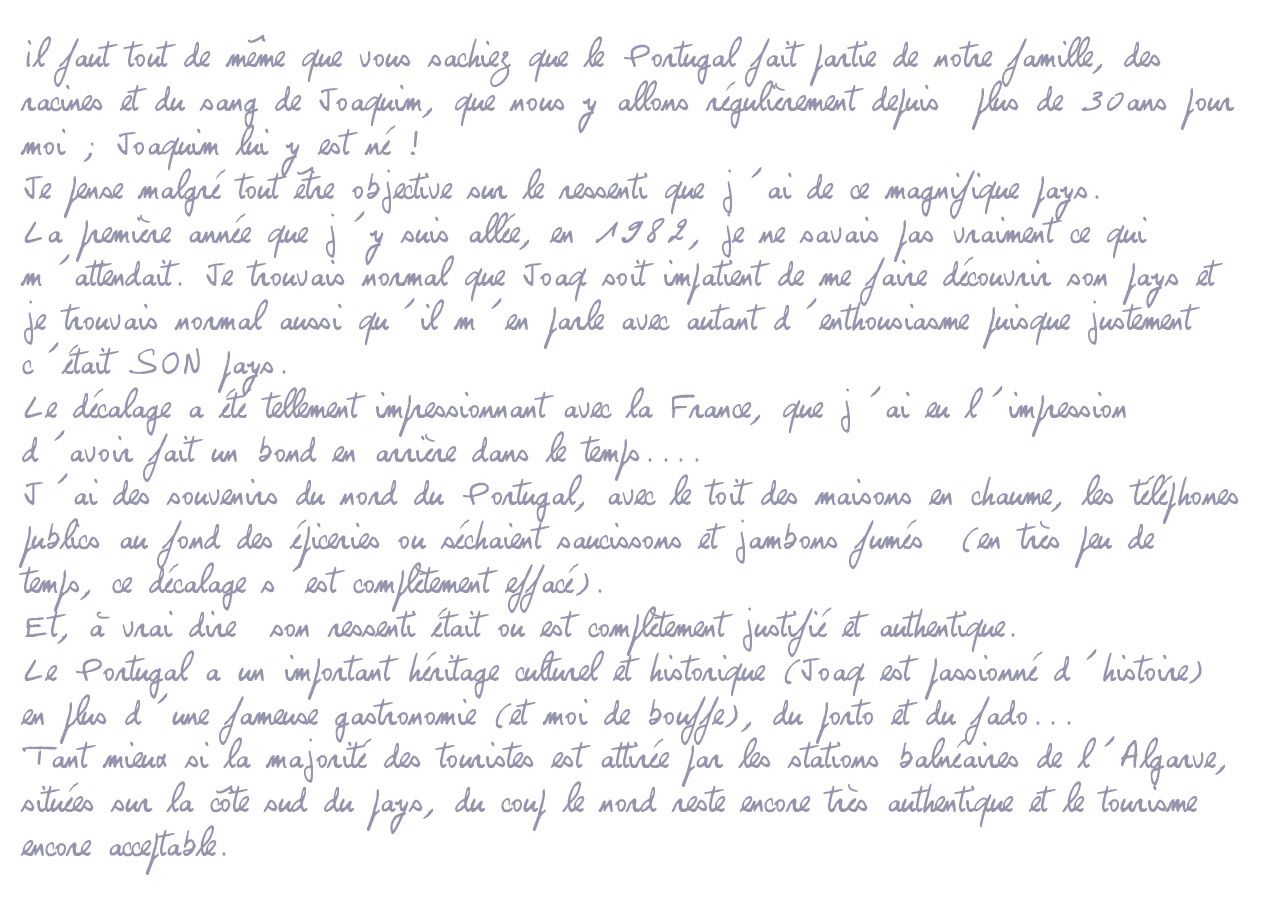 il faut tout de même que vous sachiez que le Portugal fait partie de notre famille, des
racines et du sang de Joaquim, que nous y allons régulièrement depuis plus de 30ans pour
moi ; Joaquim lui y est né !
Je pense malgré tout être objective sur le ressenti que j'ai de ce magnifique pays.
La première année que j'y suis allée, en 1982, je ne savais pas vraiment ce qui
m'attendait. Je trouvais normal que Joaq soit impatient de me faire découvrir son pays et
je trouvais normal aussi qu'il m'en parle avec autant d'enthousiasme puisque justement
c'était SON pays.
Le décalage a été tellement impressionnant avec la France, que j'ai eu l'impression
d'avoir fait un bond en arrière dans le temps....
J'ai des souvenirs du nord du Portugal, avec le toit des maisons en chaume, les téléphones
publics au fond des épiceries ou séchaient saucissons et jambons fumés (en très peu de
temps, ce décalage s'est complètement effacé).
Et, à vrai dire son ressenti était ou est complètement justifié et authentique.
Le Portugal a un important héritage culturel et historique (Joaq est passionné d'histoire)
en plus d'une fameuse gastronomie (et moi de bouffe), du porto et du fado...
Tant mieux si la majorité des touristes est attirée par les stations balnéaires de l'Algarve,
situées sur la côte sud du pays, du coup le nord reste encore très authentique et le tourisme
encore acceptable.